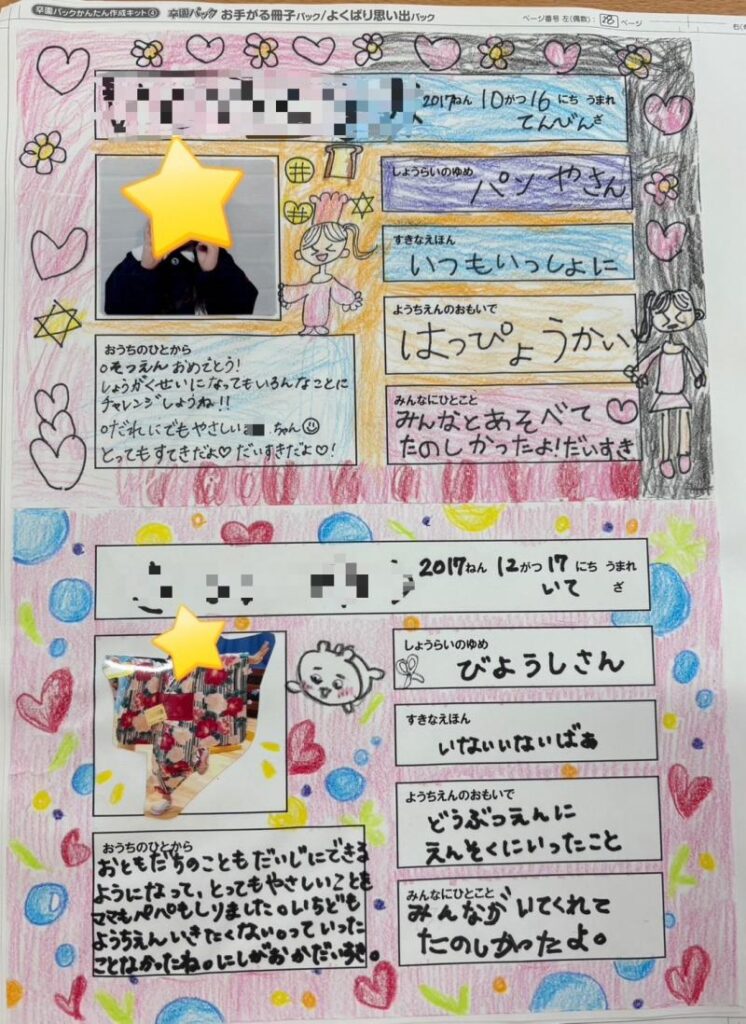 卒園パックかんたん作成キット④ 卒園パック お手がる冊子パック/よくばり思い出パック
ページ番号 左(偶数): 28 ページ
2017ねん 10がつ 16にち うまれ
てんびんざ
しょうらいのゆめ
パンやさん
すきなえほん
いつもいっしょに
ようちえんのおもいで
はっぴょうかい
みんなにひとこと
みんなとあそべて
たのしかったよ!だいすき
おうちのひとから
○そつえん おめでとう!
しょうがくせいになってもいろんなことに
チャレンジしようね!!
○だれにでもやさしい ちゃん
とってもすてきだよ♡ だいすきだよ♡!
2017ねん 12がつ 17にち うまれ
いて ざ
しょうらいのゆめ
びようしさん
すきなえほん
いないいないばあ
ようちえんのおもいで
どうぶつえんに
えんそくにいったこと
みんなにひとこと
みんながいてくれて
たのしかったよ。
おうちのひとから
おともだちのこともだいじにできる
ようになって、とってもやさしいことを
ママもパパもしりました。いちども
ようちえんいきたくないっていった
ことなかったね。にしがおかだいすき。